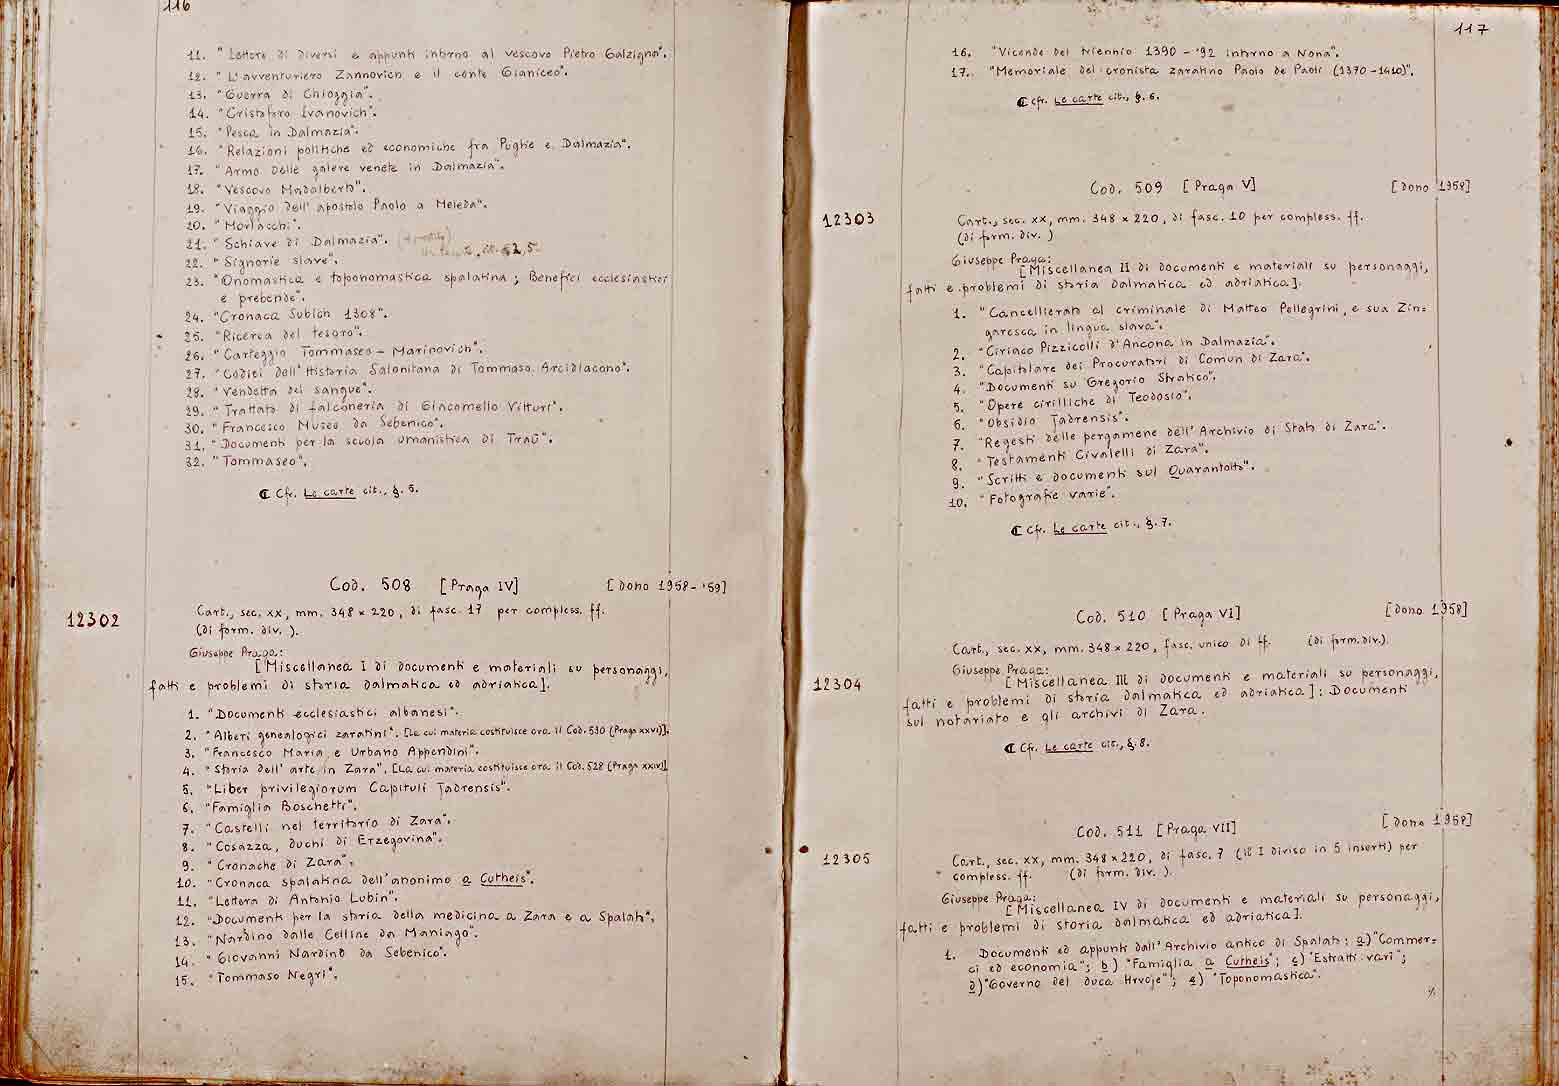 116
11. "Lettere di diversi e appunti intorno al vescovo Pietro Galzigna".
12. "L'avventuriero Zannovich e il conte Gianiceo".
13. "Guerra di Chioggia".
14. "Cristoforo Ivanovich".
15. "Pesca in Dalmazia".
16. "Relazioni politiche ed economiche fra Puglie e Dalmazia".
17. "Armo delle galere venete in Dalmazia".
18. "Vescovo Madalberto".
19. "Viaggio dell'apostolo Paolo a Meleda".
20. "Morlacchi".
21. "Schiave di Dalmazia".
22. "Signorie slave".
23. "Onomastica e toponomastica spalatina; Benefici ecclesiastici
e prebende".
24. "Cronaca Subich 1308".
25. "Ricerca del tesoro".
26. "Carteggio Tommaseo - Marinovich".
27. "Codici dell'Historia Salonitana di Tommaso Arcidiacono".
28. "Vendetta del sangue".
29. "Trattato di falconeria di Giacomello Vitturi".
30. "Francesco Museo da Sebenico".
31. "Documenti per la scuola umanistica di Traù".
32. "Tommaseo".
¶ Cfr. Le carte cit., §. 5.
Cod. 508 [Praga IV] [Dono 1958-'59]
12302
Cart., sec. XX, mm. 348 x 220, di fasc. 17 per compless. ff.
(di form. div. ).
Giuseppe Praga:
[Miscellanea I di documenti e materiali su personaggi,
fatti e problemi di storia dalmatica ed adriatica].
1. "Documenti ecclesiastici albanesi".
2. "Alberi genealogici zaratini". [La cui materia costituisce ora il Cod. 530 (Praga XXVI)].
3. "Francesco Maria e Urbano Appendini".
4. "Storia dell'arte in Zara". [La cui materia costituisce ora il Cod. 528 (Praga XXIV)]
5. "Liber privilegiorum Capituli Jadrensis".
6. "Famiglia Boschetti".
7. "Castelli nel territorio di Zara".
8. "Cosazza, duchi di Erzegovina".
9. "Cronache di Zara".
10. "Cronaca spalatina dell'anonimo a Cutheis".
11. "Lettera di Antonio Lubin".
12. "Documenti per la storia della medicina a Zara e a Spalato".
13. "Nardino dalle Celline da Maniago".
14. "Giovanni Nardino da Sebenico".
15. "Tommaso Negri".
117
16. "Vicende del triennio 1390-'92 intorno a Nona".
17. "Memoriale del cronista zaratino Paolo de Paoli (1370-1410)".
¶ Cfr. Le carte cit., §. 6.
Cod. 509 [Praga V] [Dono 1958]
12303
Cart., sec. XX, mm. 348 x 220, di fasc. 10 per compless. ff.
(di form. div. )
Giuseppe Praga:
[Miscellanea II di documenti e materiali su personaggi,
fatti e problemi di storia dalmatica ed adriatica].
1. "Cancellierato al criminale di Matteo Pellegrini, e sua Zin=
garesca in lingua slava".
2. "Ciriaco Pizzicolli d'Ancona in Dalmazia".
3. "Capitolare dei Procuratori di Comun di Zara".
4. "Documenti su Gregorio Stratico".
5. "Opere cirilliche di Teodosio".
6. "Obsidio Jadrensis".
7. "Regesti delle pergamene dell'Archivio di Stato di Zara".
8. "Testamenti Civalelli di Zara".
9. "Scritti e documenti sul Quarantotto".
10. "Fotografie varie".
¶ Cfr. Le carte cit., §. 7.
Cod. 510 [Praga VI] [Dono 1958]
Cart., sec. XX, mm. 348 x 220, fasc. unico di ff. (di form. div.).
12304
Giuseppe Praga:
[Miscellanea III di documenti e materiali su personaggi,
fatti e problemi di storia dalmatica ed adriatica]: Documenti
sul notariato e gli archivi di Zara.
¶ Cfr. Le carte cit., §. 8.
Cod. 511 [Praga VII] [Dono 1958]
12305
Cart., sec. XX, mm. 348 x 220, di fasc. 7 (il I diviso in 5 inserti) per
compless. ff. (di form. div. ).
Giuseppe Praga:
[Miscellanea IV di documenti e materiali su personaggi,
fatti e problemi di storia dalmatica ed adriatica].
1. Documenti ed appunti dall'Archivio antico di Spalato: a) "Commer=
ci ed economia"; b) "Famiglia a Cutheis"; c) "Estratti vari";
d) "Governo del duca Hrvoje"; e) "Toponomastica".
./.